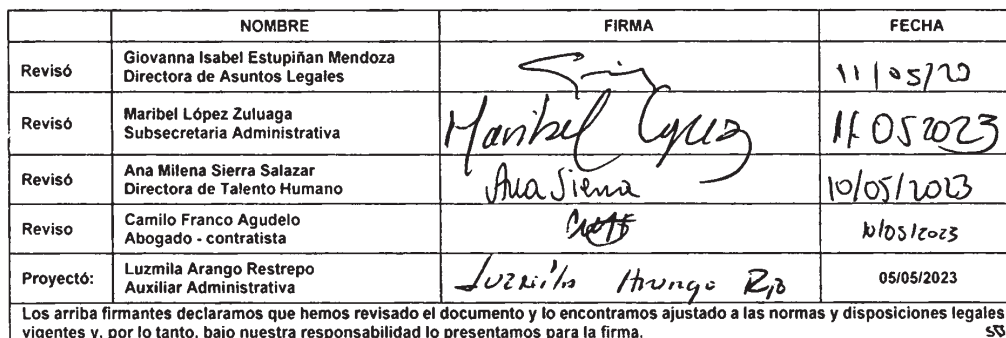 NOMBRE FIRMA FECHA
Revisó Giovanna Isabel Estupiñan Mendoza
Directora de Asuntos Legales 11/05/23
Revisó Maribel López Zuluaga
Subsecretaria Administrativa Maribel López 11 05 2023
Revisó Ana Milena Sierra Salazar
Directora de Talento Humano Ana Sierra 10/05/2023
Reviso Camilo Franco Agudelo
Abogado - contratista 10/05/2023
Proyectó: Luzmila Arango Restrepo
Auxiliar Administrativa Luzmila Arango R 05/05/2023
Los arriba firmantes declaramos que hemos revisado el documento y lo encontramos ajustado a las normas y disposiciones legales
vigentes y, por lo tanto, bajo nuestra responsabilidad lo presentamos para la firma.